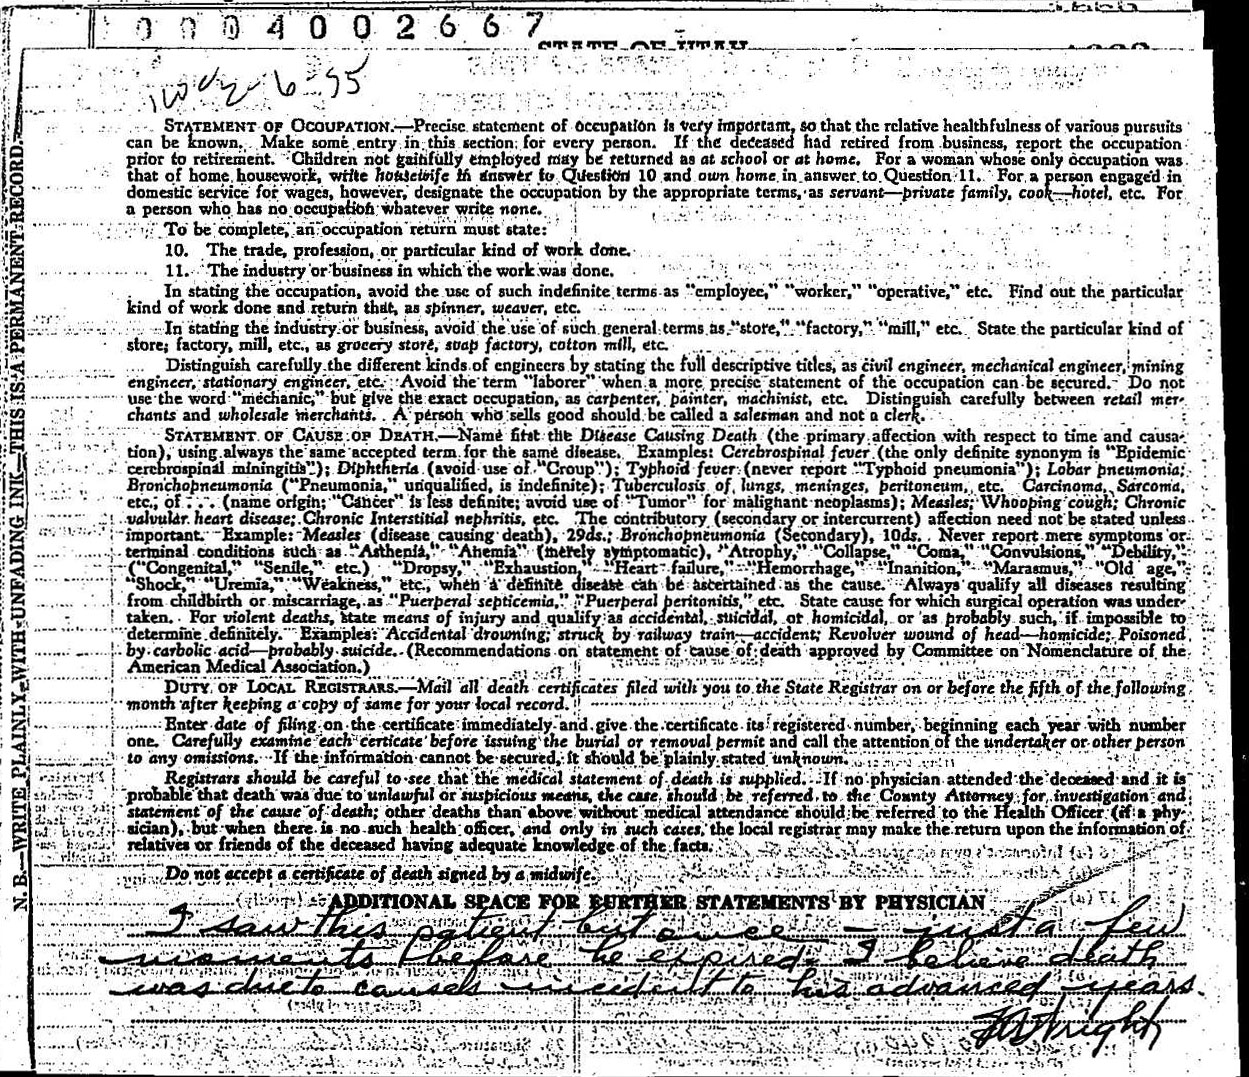 0004002667
STATE OF UTAH
N. B.—WRITE PLAINLY WITH UNFADING INK—THIS IS A PERMANENT RECORD.
6-55
STATEMENT OF OCCUPATION.—Precise statement of occupation is very important, so that the relative healthfulness of various pursuits
can be known. Make some entry in this section for every person. If the deceased had retired from business, report the occupation
prior to retirement. Children not gainfully employed may be returned as at school or at home. For a woman whose only occupation was
that of home housework, write housewife in answer to Question 10 and own home in answer to Question 11. For a person engaged in
domestic service for wages, however, designate the occupation by the appropriate terms, as servant—private family, cook—hotel, etc. For
a person who has no occupation whatever write none.
To be complete, an occupation return must state:
10. The trade, profession, or particular kind of work done.
11. The industry or business in which the work was done.
In stating the occupation, avoid the use of such indefinite terms as "employee," "worker," "operative," etc. Find out the particular
kind of work done and return that, as spinner, weaver, etc.
In stating the industry or business, avoid the use of such general terms as "store," "factory," "mill," etc. State the particular kind of
store, factory, mill, etc., as grocery store, soap factory, cotton mill, etc.
Distinguish carefully the different kinds of engineers by stating the full descriptive titles, as civil engineer, mechanical engineer, mining
engineer, stationary engineer, etc. Avoid the term "laborer" when a more precise statement of the occupation can be secured. Do not
use the word "mechanic," but give the exact occupation, as carpenter, painter, machinist, etc. Distinguish carefully between retail mer-
chants and wholesale merchants. A person who sells good should be called a salesman and not a clerk.
STATEMENT OF CAUSE OF DEATH.—Name first the Disease Causing Death (the primary affection with respect to time and causa-
tion), using always the same accepted term for the same disease. Examples: Cerebrospinal fever (the only definite synonym is "Epidemic
cerebrospinal miningitis"); Diphtheria (avoid use of "Croup"); Typhoid fever (never report "Typhoid pneumonia"); Lobar pneumonia;
Bronchopneumonia ("Pneumonia," unqualified, is indefinite); Tuberculosis of lungs, meninges, peritoneum, etc. Carcinoma, Sarcoma,
etc., of . . . (name origin; "Cancer" is less definite; avoid use of "Tumor" for malignant neoplasms); Measles; Whooping cough; Chronic
valvular heart disease; Chronic Interstitial nephritis, etc. The contributory (secondary or intercurrent) affection need not be stated unless
important. Example: Measles (disease causing death), 29ds.; Bronchopneumonia (Secondary), 10ds. Never report mere symptoms or
terminal conditions such as "Asthenia," "Anemia" (merely symptomatic), "Atrophy," "Collapse," "Coma," "Convulsions," "Debility,"
("Congenital," "Senile," etc.) "Dropsy," "Exhaustion," "Heart failure," "Hemorrhage," "Inanition," "Marasmus," "Old age,"
"Shock," "Uremia," "Weakness," etc., when a definite disease can be ascertained as the cause. Always qualify all diseases resulting
from childbirth or miscarriage, as "Puerperal septicemia," "Puerperal peritonitis," etc. State cause for which surgical operation was under-
taken. For violent deaths, state means of injury and qualify as accidental, suicidal, or homicidal, or as probably such, if impossible to
determine definitely. Examples: Accidental drowning; struck by railway train—accident; Revolver wound of head—homicide; Poisoned
by carbolic acid—probably suicide. (Recommendations on statement of cause of death approved by Committee on Nomenclature of the
American Medical Association.)
DUTY OF LOCAL REGISTRARS.—Mail all death certificates filed with you to the State Registrar on or before the fifth of the following
month after keeping a copy of same for your local record.
Enter date of filing on the certificate immediately and give the certificate its registered number, beginning each year with number
one. Carefully examine each certicate before issuing the burial or removal permit and call the attention of the undertaker or other person
to any omissions. If the information cannot be secured, it should be plainly stated unknown.
Registrars should be careful to see that the medical statement of death is supplied. If no physician attended the deceased and it is
probable that death was due to unlawful or suspicious means, the case should be referred to the County Attorney for investigation and
statement of the cause of death; other deaths than above without medical attendance should be referred to the Health Officer (if a phy-
sician), but when there is no such health officer, and only in such cases, the local registrar may make the return upon the information of
relatives or friends of the deceased having adequate knowledge of the facts.
Do not accept a certificate of death signed by a midwife.
ADDITIONAL SPACE FOR FURTHER STATEMENTS BY PHYSICIAN
I saw this patient but once – just a few
moments before he expired. I believe death
was due to causes incident to his advanced years.
Wright